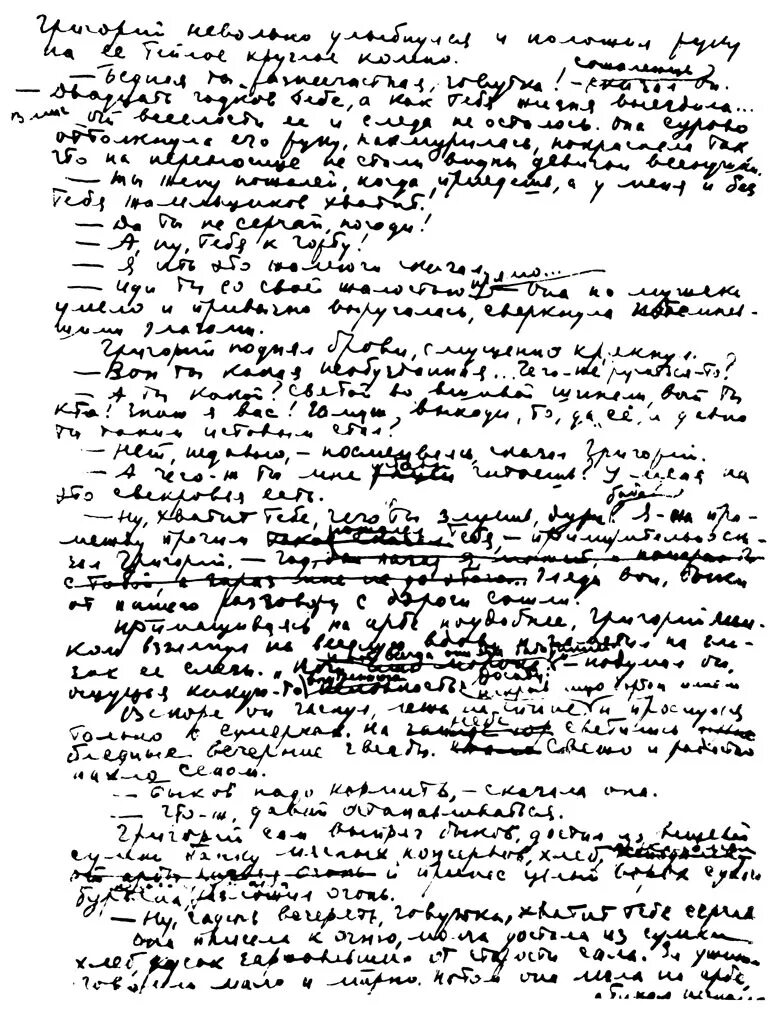 Григорий невольно улыбнулся и положил руку
на ее теплое круглое колено.
— Бедная ты, разнесчастная, зовутка! — сказал он. сожалеюще
— Двадцать годков тебе, а как тебя жизня выездила...
В миг от веселости ее и следа не осталось. Она сурово
оттолкнула его руку, нахмурилась, покраснела так
что на переносице не стали видны девичьи веснушки.
— Ты жену пожалей, когда приедешь, а у меня и без
тебя жалельщиков хватит.
— Да ты не серчай, погоди!
— А, ну, тебя к чорту!
— Я ить это жалеючи сказал
— Иди ты со своей жалостью прямо... — она по мужски
умело и привычно выругалась, сверкнула потемнев-
шими глазами.
Григорий поднял брови, смущенно крякнул.
— Вон ты какая необузданная...
— А ты какой? Святой во вшивой шинели, вот ты
кто! Знаю я вас! Женись, выходи, то, да сё, и давно
ты таким истовым стал?
— Нет, недавно, — посмеиваясь, сказал Григорий.
— А чего-ж ты мне читаешь? У меня на
это свекровья есть.
— Ну, хватит тебе, чего ты злишь, дура баба! Я-ж про-
между прочим тебя, — примирительно ска-
зал Григорий. — Гляди вон, быки
от нашего разговору с дороги сошли.
Примащиваясь на арбе поудобнее, Григорий мель-
ком взглянул на веселую вдову и на гла-
зах ее слезы. — подумал он,
ощущая какую-то
Вскоре он заснул, лежа на спине и проснулся
только к сумеркам. На небе светились
бледные вечерние звезды. Свежо и радостно
пахло сеном.
— Быков надо кормить, — сказала она.
— Что-ж, давай останавливаться.
Григорий сам выпряг быков, достал из вещевой
сумки банку мясных консервов, хлеб,
и принес целый ворох сухого
бурьяна, разложил огонь.
— Ну, садись вечерять, зовутка, хватит тебе серчать
Она присела к огню, молча достала из сумки
хлеб, кусок заржавевшего от старости сала. За ужином
говорили мало и мирно. Потом она легла на арбе,